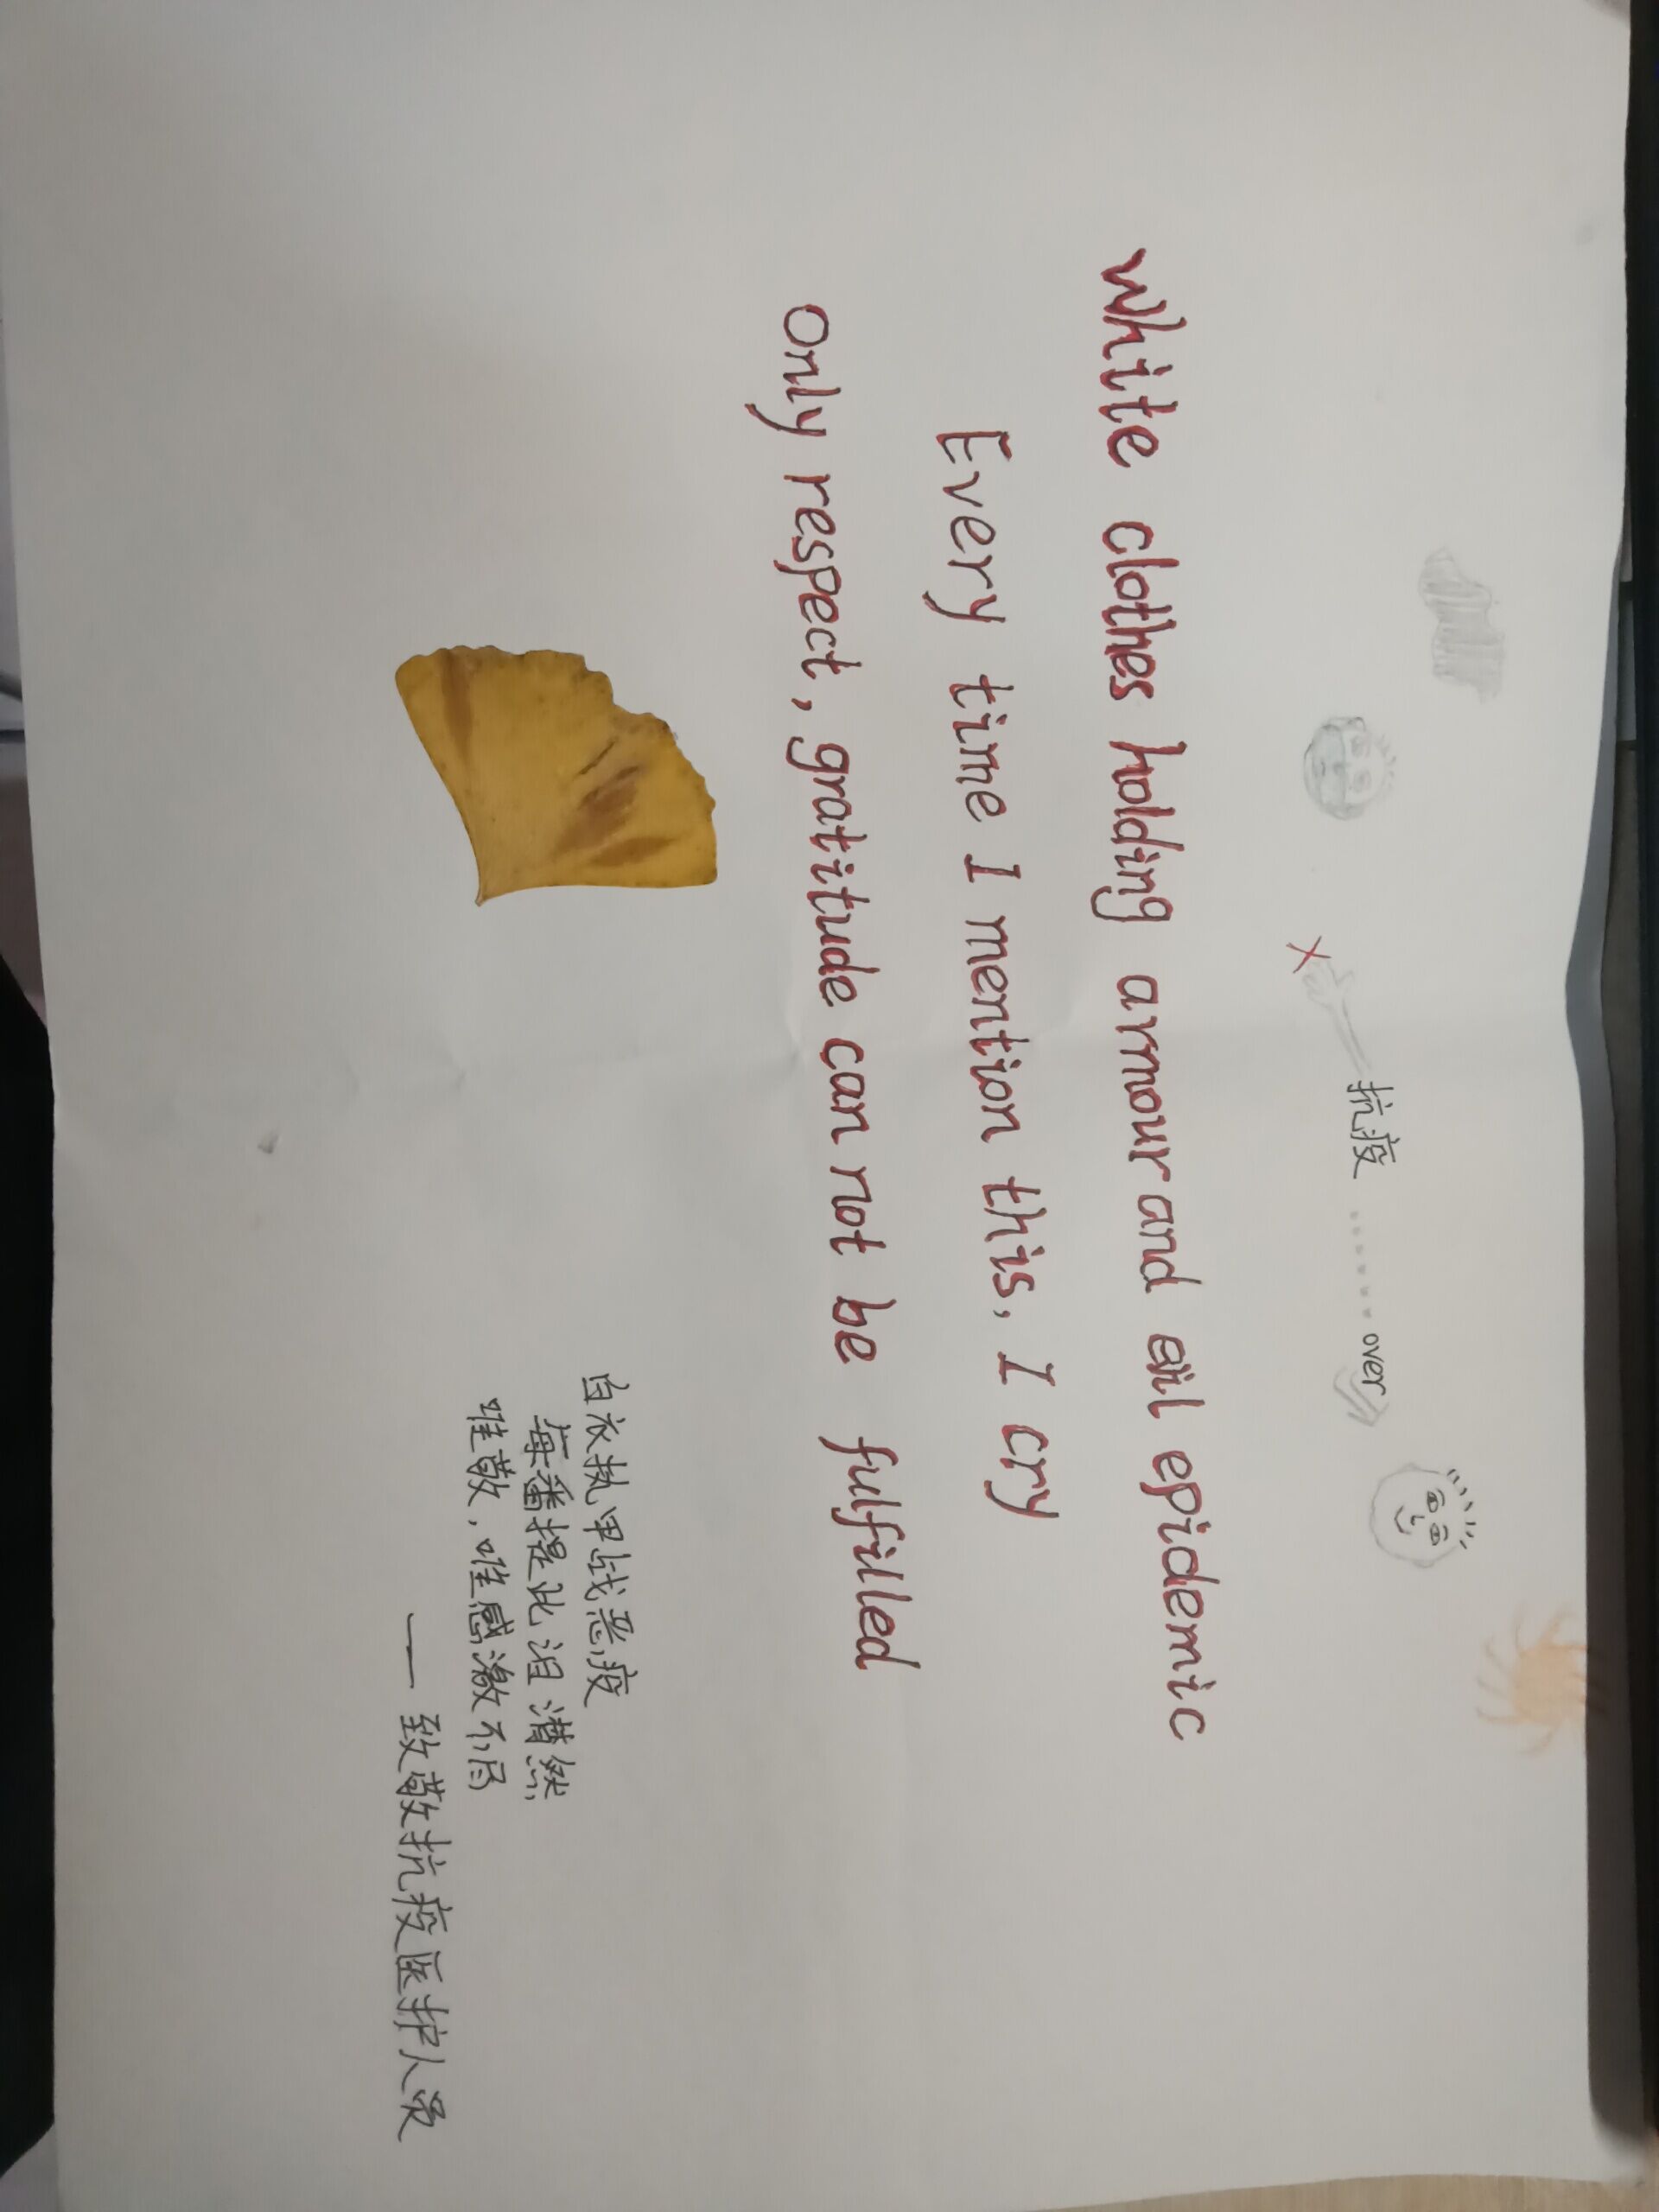 抗疫 ...... over
White clothes holding armour and evil epidemic
Every time I mention this, I cry
only respect, gratitude can not be fulfilled
白衣执甲战恶疫
每番提此泪潸然
唯敬，唯感激不尽
——致敬抗疫医护人员